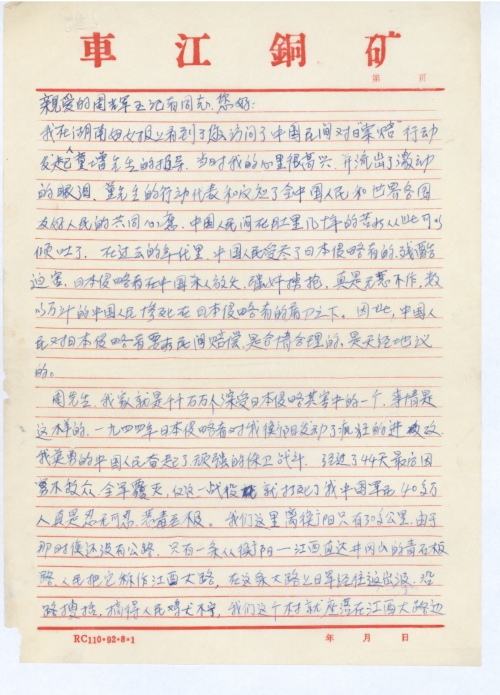 車江銅矿
第 页
亲爱的周志军玉记者同志,您好:
我在湖南妇女报上看到了您访问了中国民间对日"索赔"行动
发起童增先生的报导,当时我的心里很高兴,并流出了激动
的眼泪,童先生的行动代表和反应了全中国人民和世界各国
友好人民的共同心愿,中国人民闷在肚里几十年的苦水从此可以
倾吐了。在过去的年代里,中国人民受尽了日本侵略者的残酷
迫害,日本侵略者在中国杀人放火,强奸掳抢,真是无恶不作,数
以万计的中国人民惨死在日本侵略者的屠刀之下。因此,中国人
民对日本侵略者要求民间赔偿,是合情合理的,是天经地义
的。
周先生,我家就是千千万万人深受日本侵略其害中的一个,事情是
这样的,一九四四年日本侵略者对我衡阳发动了疯狂的进攻,
我英勇的中国人民奋起了顽强的保卫战斗,经过了44天最后因
寡不敌众,全军覆灭,仅这一战役就打死了我中国军民40多万
人真是忍无可忍,恶毒至极。我们这里离衡阳只有30多公里,由于
那时候还没有公路,只有一条从衡阳—江西直达井冈山的青石板
路,人民把它称作江西大路,在这条大路上日军经往返出没,沿
路搜抢,搞得人民鸡犬不宁,我们这个村就座落在江西大路边
RC110·92·8·1
年 月 日